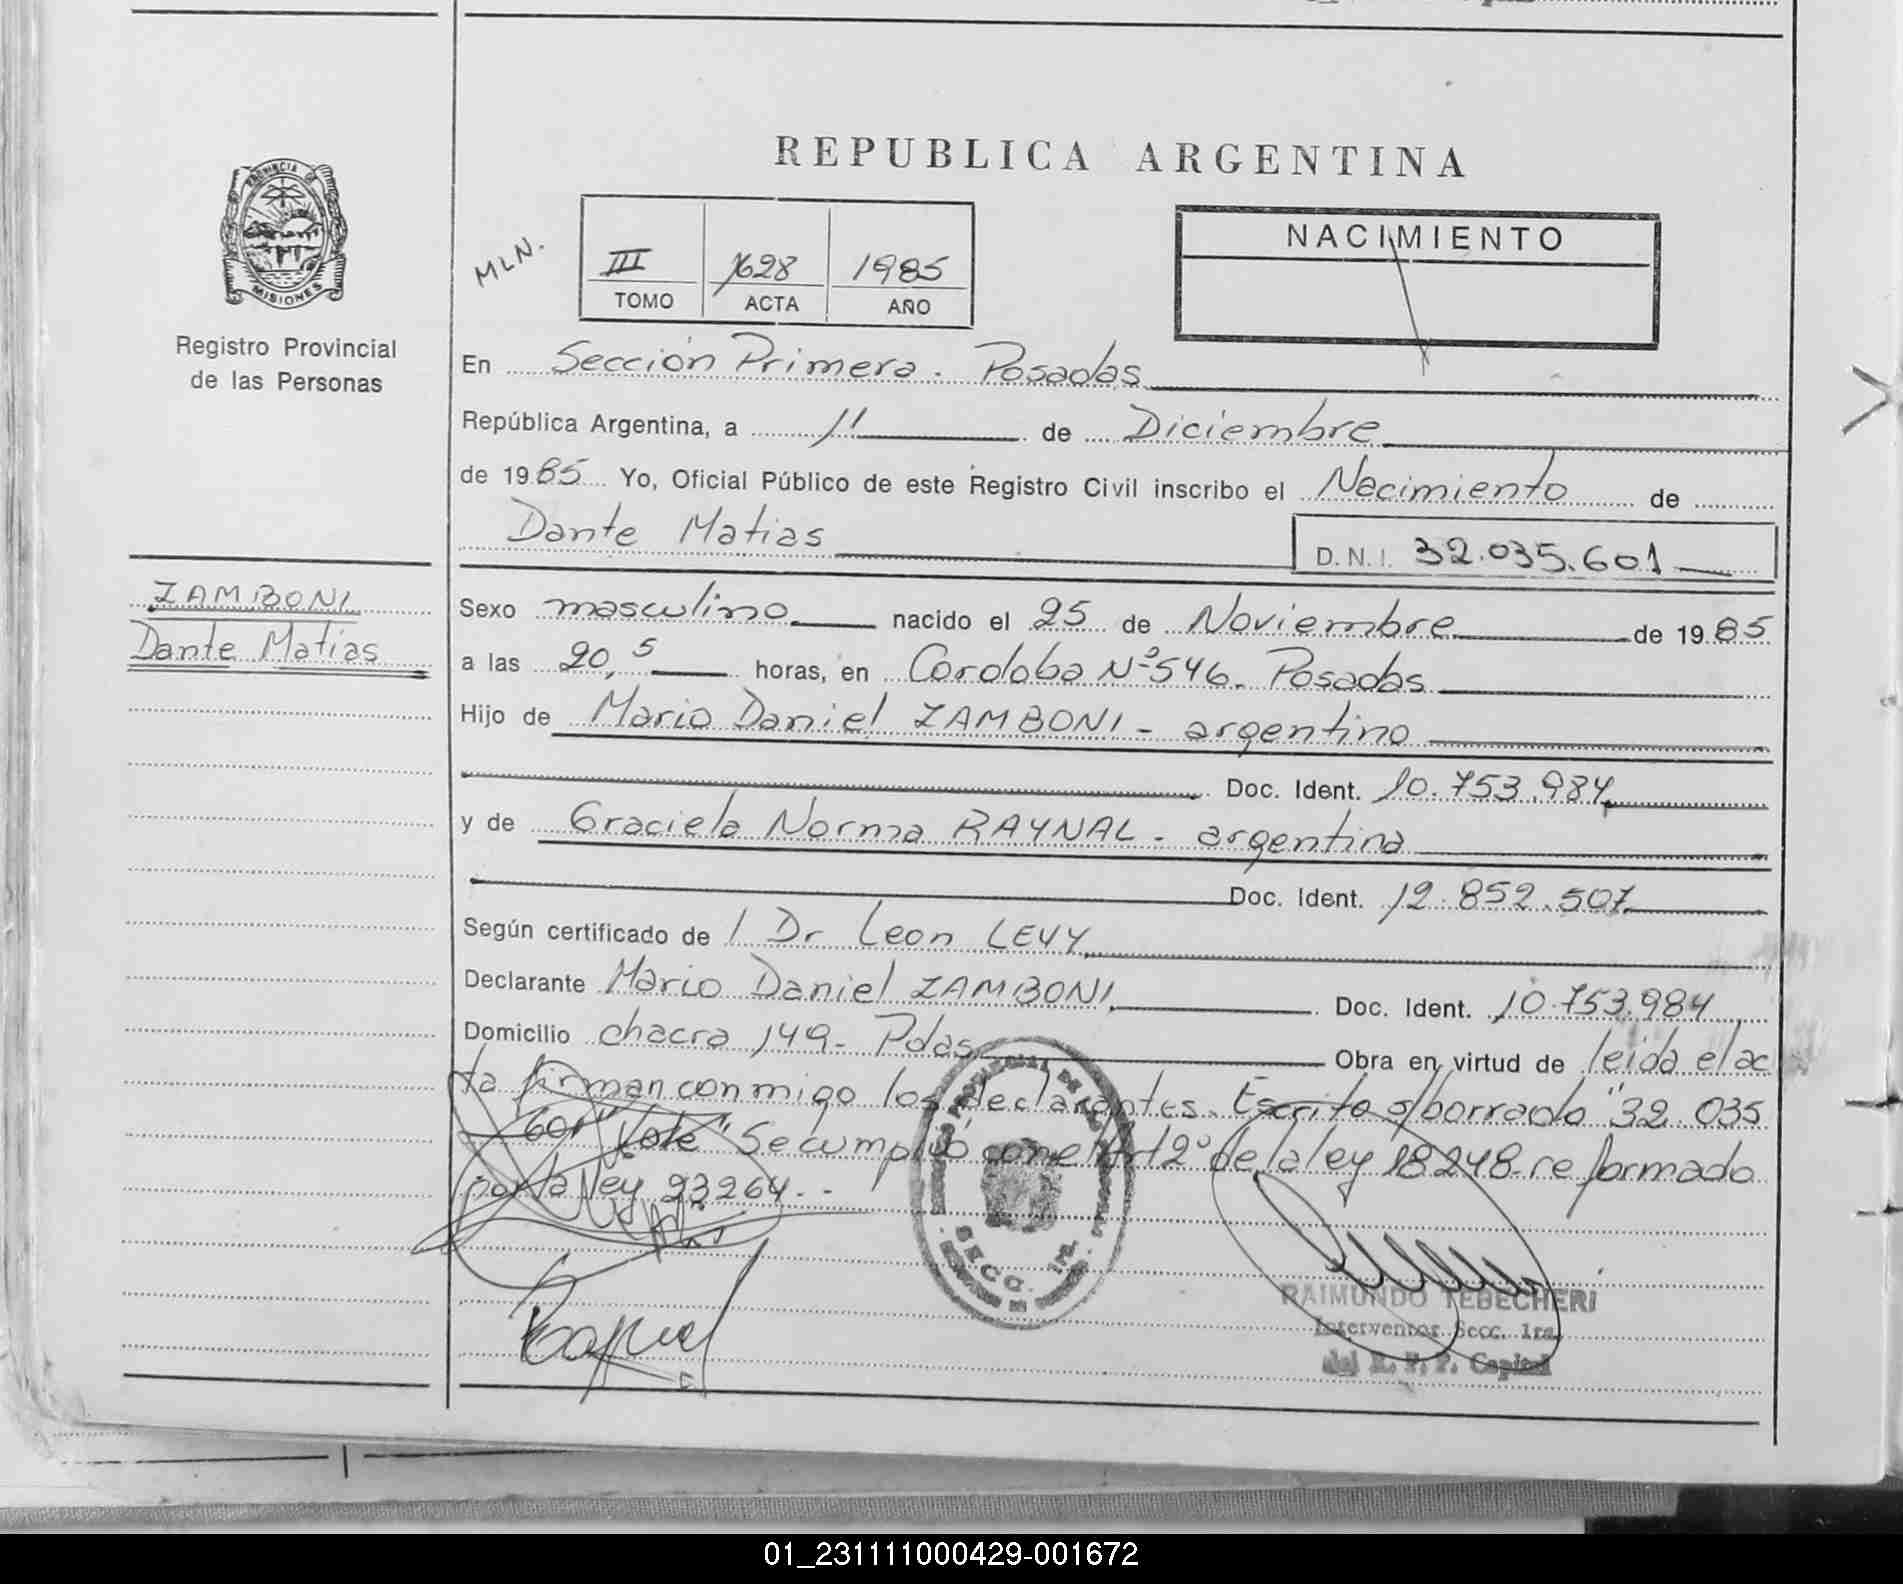 REPUBLICA ARGENTINA
PROVINCIA DE
MISIONES
Registro Provincial
de las Personas
MLN.
III 1628 1985
TOMO ACTA AÑO
NACIMIENTO
En Sección Primera. Posadas
República Argentina, a 11 de Diciembre
de 1985 Yo, Oficial Público de este Registro Civil inscribo el Nacimiento de
Dante Matias
D.N.I. 32.035.601
ZAMBONI
Dante Matias
Sexo masculino nacido el 25 de Noviembre de 1985
a las 20,5 horas, en Cordoba Nº 546. Posadas
Hijo de Mario Daniel ZAMBONI - argentino
Doc. Ident. 10.753.984
y de Graciela Norma RAYNAL - argentina
Doc. Ident. 12.852.507
Según certificado de / Dr Leon LEVY
Declarante Mario Daniel ZAMBONI Doc. Ident. 10.753.984
Domicilio chacra 149 - Pdas Obra en virtud de leida el ac
ta firman conmigo los declarantes. Escrito s/borrado "32.035
601" Vale" Se cumplió con el Art 2º de la ley 18248 reformado
por la ley 23264. -
SECC. 1ra.
RAIMUNDO TEBECHERI
Interventor Secc. 1ra.
del R. P. P. Capital
01_231111000429-001672